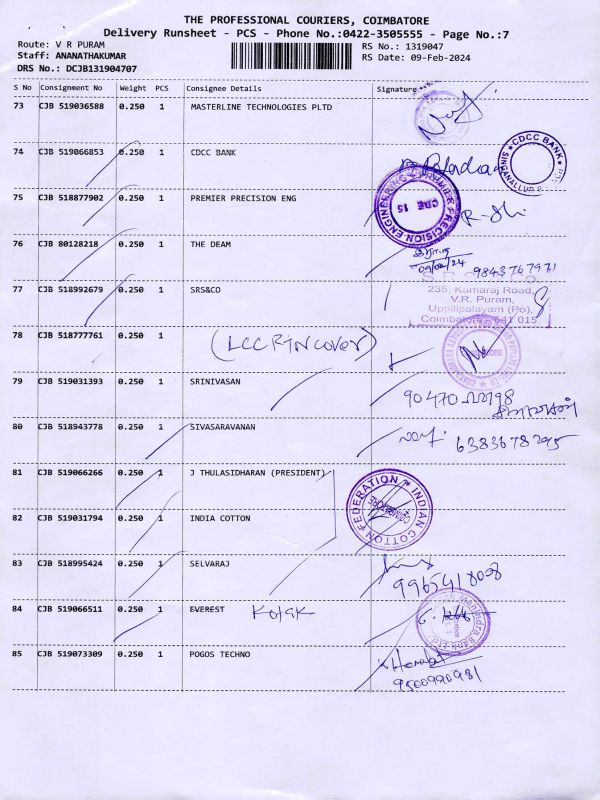 THE PROFESSIONAL COURIERS, COIMBATORE
Delivery Runsheet - PCS - Phone No.:0422-3505555 - Page No.:7
Route: V R PURAM
Staff: ANANATHAKUMAR
DRS No.: DCJB131904707
RS No.: 1319047
RS Date: 09-Feb-2024
S No Consignment No Weight PCS Consignee Details Signature
73 CJB 519036588 0.250 1 MASTERLINE TECHNOLOGIES PLTD
74 CJB 519066853 0.250 1 CDCC BANK
CDCC BANK
75 CJB 518877902 0.250 1 PREMIER PRECISION ENG
PREMIER PRECISION ENGINEERING
CBE 15
76 CJB 80128218 0.250 1 THE DEAM
09/02/24 9843767971
77 CJB 518992679 0.250 1 SRS&CO
235, Kumaraj Road,
V.R. Puram,
Uppilipalayam (Po),
Coimbatore - 641 015.
78 CJB 518777761 0.250 1
79 CJB 519031393 0.250 1 SRINIVASAN
80 CJB 518943778 0.250 1 SIVASARAVANAN
6383678295
81 CJB 519066266 0.250 1 J THULASIDHARAN (PRESIDENT)
INDIAN COTTON FEDERATION
COIMBATORE
82 CJB 519031794 0.250 1 INDIA COTTON
83 CJB 518995424 0.250 1 SELVARAJ
9965418028
84 CJB 519066511 0.250 1 EVEREST Kotak
85 CJB 519073309 0.250 1 POGOS TECHNO
9500990981